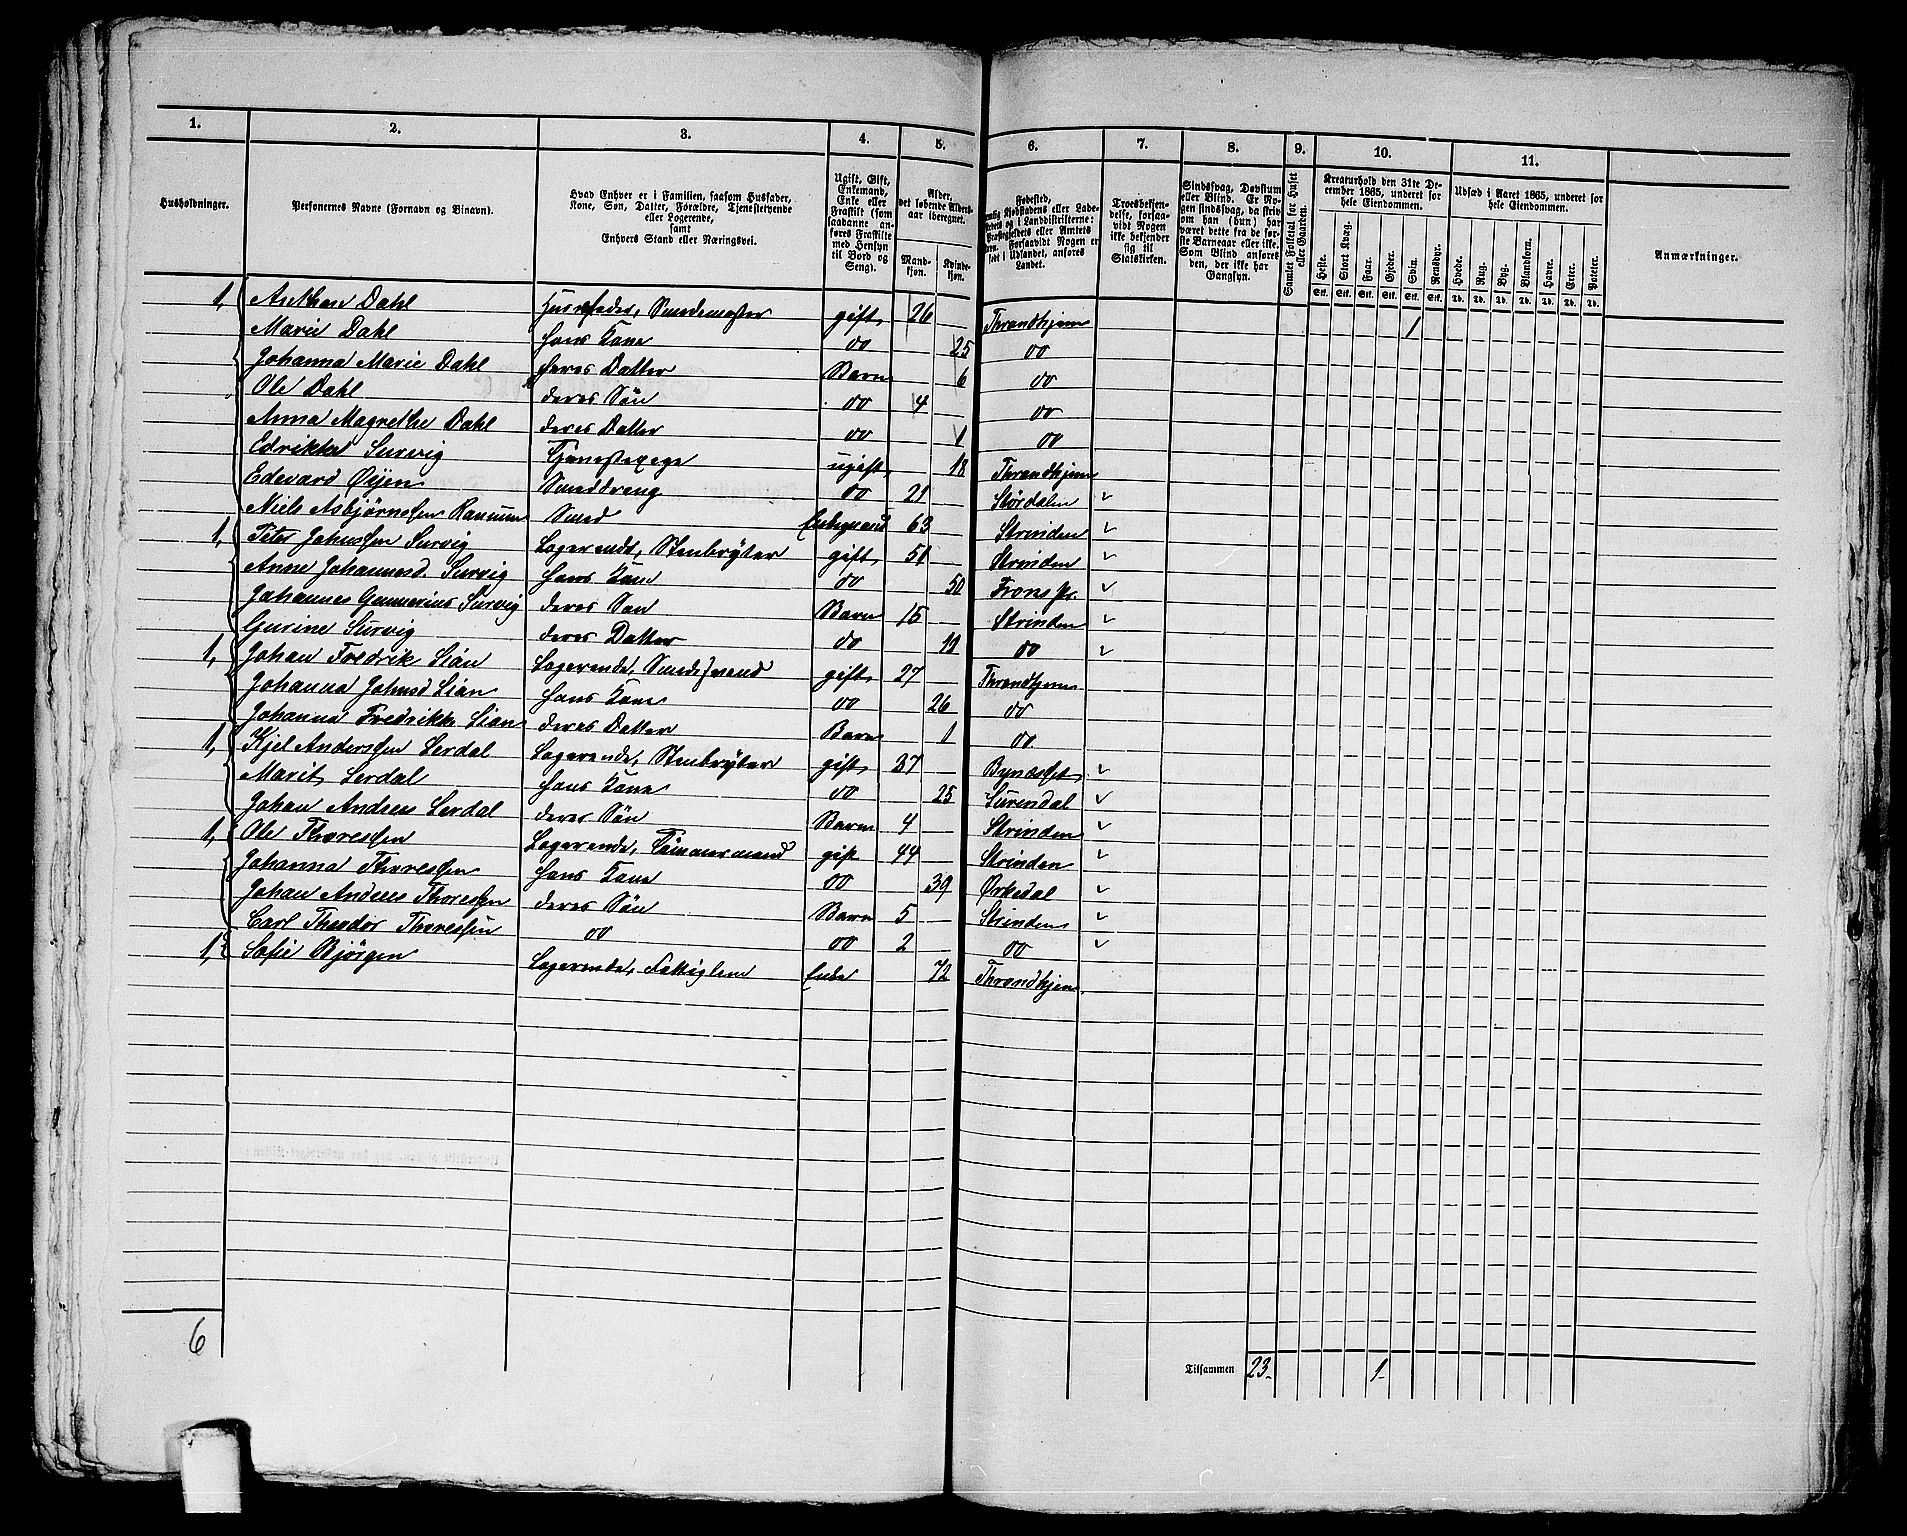 1. 2. 3. 4. 5. 6. 7. 8. 9. 10. 11.
Husholdninger. Personernes Navne (Fornavn og Binavn). Hvad Enhver er i Familien, saasom Husfader, Kone, Søn, Datter, Forældre, Tjenestetyende eller Logerende, samt Enhvers Stand eller Næringsvei. Ugift, Gift, Enkemand, Enke eller Fraskilt (som saadanne anføres Fraskilte med Hensyn til Bord og Seng). Alder, det løbende Alders-aar iberegnet. Mand-kjøn. Kvinde-kjøn. Fødested, Troesbekjendelse, forsaavidt Nogen ikke bekjender sig til Statskirken. Sindssvag, Døvstum eller Blind. Samlet Folketal for Huset eller Gaarden. Kreaturhold den 31te December 1865, underet for hele Eiendommen. Udsæd i Aaret 1865, underet for hele Eiendommen. Anmærkninger.
Heste. Stort Kvæg. Faar. Gjeder. Svin. Rensdyr. Hvede. Rug. Byg. Blandkorn. Havre. Erter. Poteter.
Stk. Stk. Stk. Stk. Stk. Stk. Td. Td. Td. Td. Td. Td. Td.
1, Anthon Dahl Husfader, Smedemester gift, 26 Throndhjem 1
Marie Dahl Hans Kone do 25 do
Johanna Marie Dahl Deres Datter Barn 6 do
Ole Dahl deres Søn do 4 do
Anna Magrethe Dahl deres Datter do 1 do
Edrikka Survig Tjenestepige ugift, 18 Throndhjem
Edevard Øijen Smeddreng do 21 Størdalen
Niels Asbjørnssen Ranum Smed Enkemand 63 Strinden
1, Peter Johnssen Survig Logerende, Stenbryter gift, 51 Strinden
Anne Johannesd. Survig Hans Kone do 50
Johannes Gunnerius Survig deres Søn Barn 15 Strinden
Gurine Survig deres Datter do 11 do
1, Johan Fredrik Lian Logerende, Smedesvend gift, 27 Throndhjem
Johanna Johnsd Lian Hans Kone do 26 do
Johanna Fredrikke Lian deres Datter Barn 1 do
1, Kjel Anderssen Lerdal Logerende, Stenbryter gift, 27 Bynesset
Marit Lerdal Hans Kone do 25 Surendal
Johan Andreas Lerdal deres Søn Barn 4 Strinden
1, Ole Thoressen Logerende, Tømmermand gift 44 Strinden
Johanna Thoressen Hans Kone do 39 Ørkedal
Johan Andreas Thoressen deres Søn Barn 5 Strinden
Carl Theodor Thoressen do do 2 do
1, Sofie Bjørgen Logerende, Fattiglem Enke 72 Throndhjem
6 Tilsammen 23 1